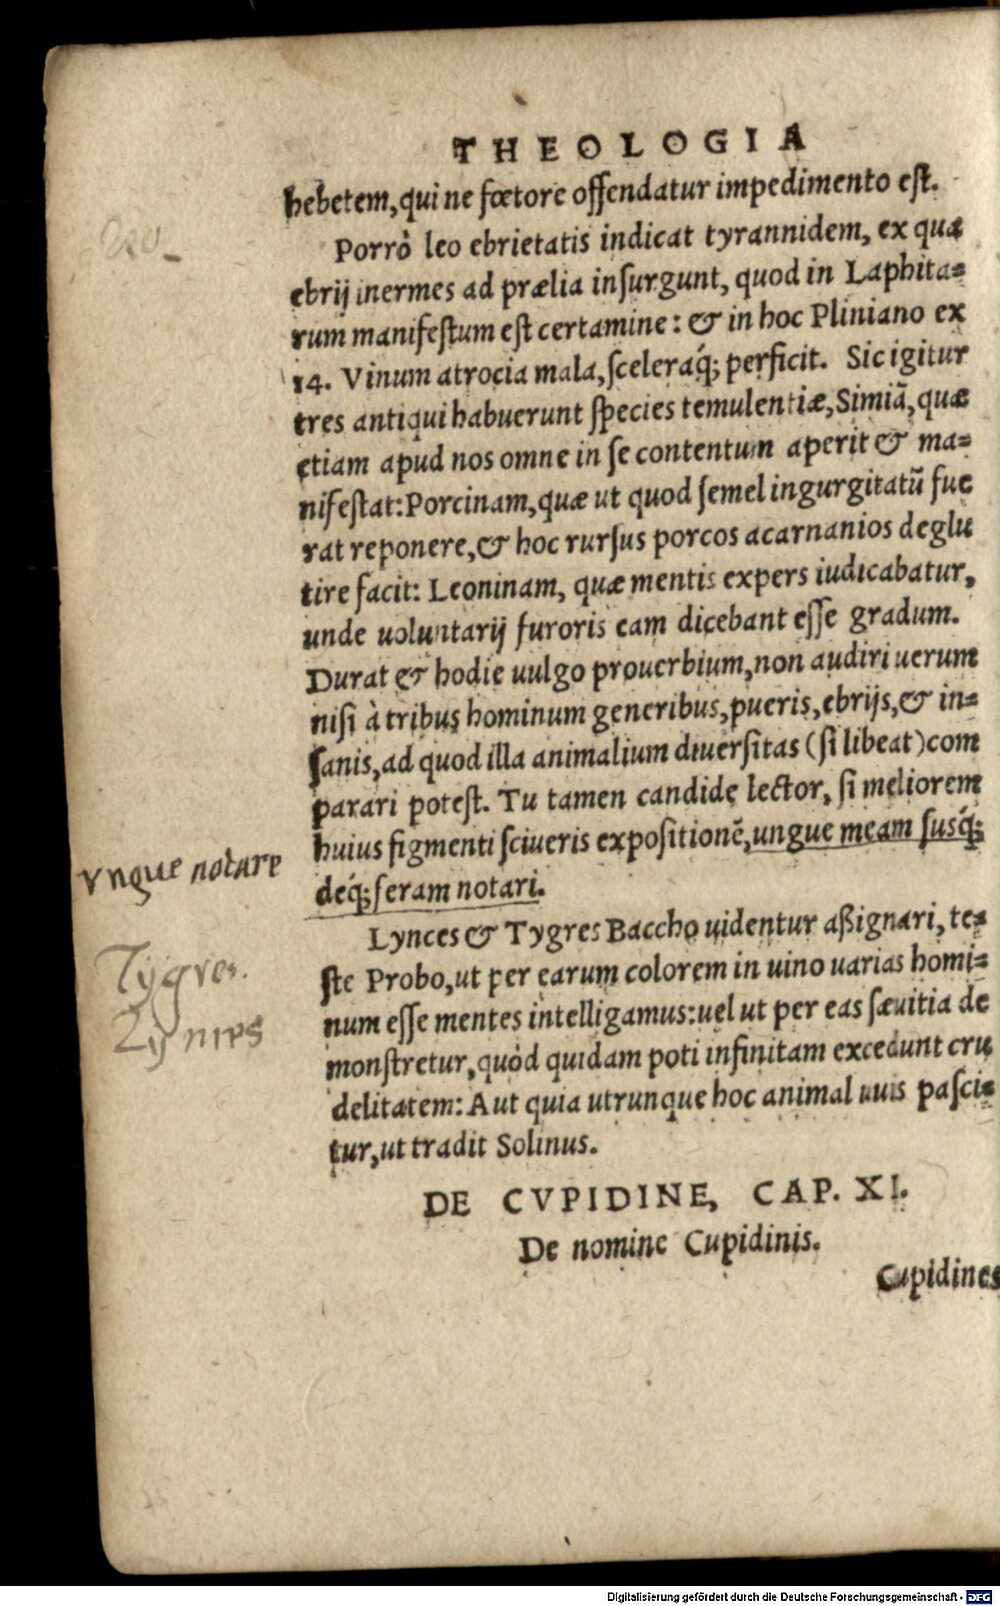 THEOLOGIA
hebetem, qui ne fœtore offendatur impedimento eſt.
Porrò leo ebrietatis indicat tyrannidem, ex qua
ebrij inermes ad prælia inſurgunt, quod in Laphita=
rum manifeſtum eſt certamine: & in hoc Pliniano ex
14. Vinum atrocia mala, ſceleraq́; perficit. Sic igitur
tres antiqui habuerunt ſpecies temulentiæ, Simiã, quæ
etiam apud nos omne in ſe contentum aperit & ma=
nifeſtat: Porcinam, quæ ut quod ſemel ingurgitatũ fue
rat reponere, & hoc rurſus porcos acarnanios deglu
tire facit: Leoninam, quæ mentis expers iudicabatur,
unde uoluntarij furoris eam dicebant eſſe gradum.
Durat & hodie uulgo prouerbium, non audiri uerum
niſi à tribus hominum generibus, pueris, ebrijs, & in=
ſanis, ad quod illa animalium diuerſitas (ſi libeat) com
parari poteſt. Tu tamen candide lector, ſi meliorem
huius figmenti ſciueris expoſitionẽ, ungue meam ſusq́;
deq́; feram notari.
Vngue notare
Lynces & Tygres Baccho uidentur aßignari, te=
Tygres.
ſte Probo, ut per earum colorem in uino uarias homi=
num eſſe mentes intelligamus: uel ut per eas ſæuitia de
Lynces
monſtretur, quòd quidam poti infinitam excedunt cru
delitatem: Aut quia utrunque hoc animal uuis paſci=
tur, ut tradit Solinus.
DE CVPIDINE, CAP. XI.
De nomine Cupidinis.
Cupidines
Digitalisierung gefördert durch die Deutsche Forschungsgemeinschaft - DFG